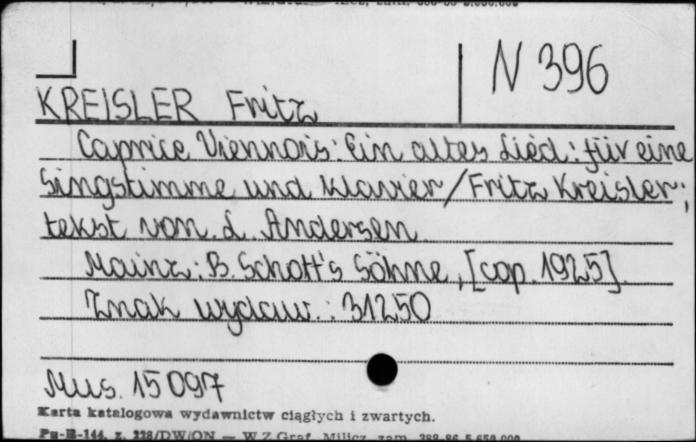 N 396
KREISLER Fritz
Caprice Viennois : Ein altes Lied : für eine
Singstimme und Klavier / Fritz Kreisler ;
tekst von L. Andersen
Mainz : B. Schott's Söhne, [cop. 1925].
Znak wydaw. : 31250
Mus. 15 097
Karta katalogowa wydawnictw ciągłych i zwartych.
Pu-B-144, z. 228/DW/ON — W.Z.Graf. Milicz, zam. 388-86 5.650.000